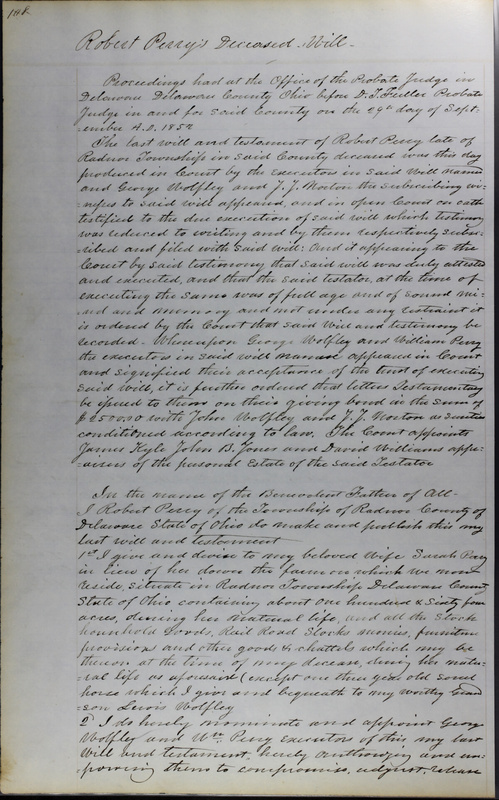 148
Robert Perry's Deceased Will
Proceedings had at the Office of the Probate Judge in
Delaware Delaware County Ohio before D. T. Fuller Probate
Judge in and for said County on the 29th day of Sept-
-ember A.D. 1852
The last will and testament of Robert Perry late of
Radnor Township in said County deceased was this day
produced in Court by the executors in said Will named
and George Wolfley and J. J. Norton the subscribing wi-
-tness to said will appeared, and in open Court on oath
testified to the due execution of said will which testimony
was reduced to writing and by them respectively subsc-
-ribed and filed with said will: And it appearing to the
Court by said testimony that said will was duly attested
and executed, and that the said testator at the time of
executing the same was of full age and of sound mi-
-nd and memory and not under any restraint it
is ordered by the Court that said Will and testimony be
recorded. Whereupon George Wolfley and William Perry
the executors in said will named appeared in Court
and signified their acceptance of the trust of executing
said will, it is further ordered that letters Testamentary
be issued to them on their giving bond in the sum of
$2500.00 with John Wolfley and J. J. Norton as sureties
conditioned according to law. The Court appoints
James Kyle John B. Jones and David Williams appr-
-aisers of the personal Estate of the said Testator
In the name of the Benevolent Father of All-
I Robert Perry of the Township of Radnor County of
Delaware State of Ohio do make and publish this my
last will and testament
1st I give and devise to my beloved Wife Sarah Perry
in lieu of her dower the farm on which we now
reside, situate in Radnor Township Delaware County
State of Ohio containing about One hundred & Sixty four
acres, during her natural life, and all the Stock
household Goods, Rail Road Stocks monies, furniture
provisions and other goods & chattels which may be
thereon at the time of my decease, during her natu-
-ral life as aforesaid (except one three year old sorrel
horse which I give and bequeath to my worthy Grand
son Lewis Wolfley
2d I do hereby nominate and appoint George
Wolfley and Wm Perry executors of this my last
Will and testament, hereby authorizing and em-
-powering them to compromise, adjust, release